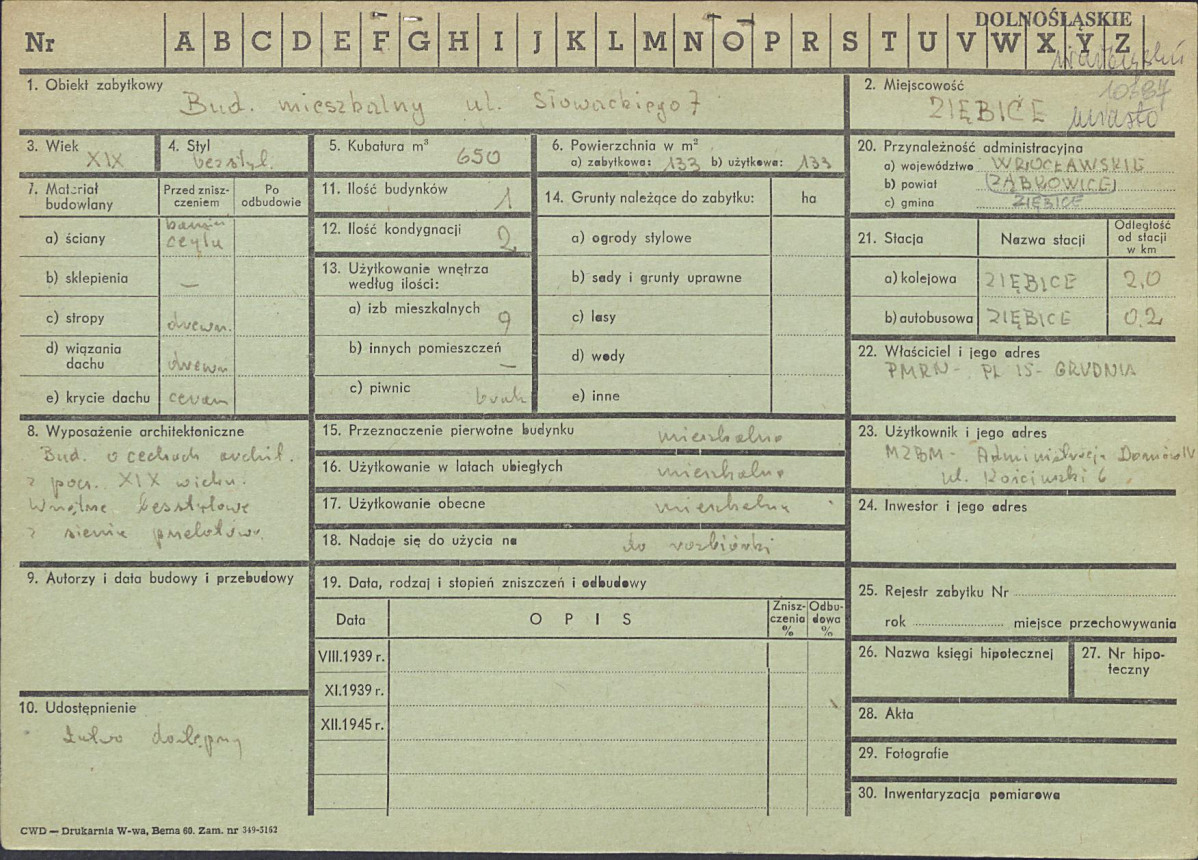 DOLNOŚLĄSKIE
Nr A B C D E F G H I J K L M N O P R S T U V W X Y Z
1. Obiekt zabytkowy
Bud. mieszkalny ul. Słowackiego 7
2. Miejscowość
10387
ZIĘBICE miasto
3. Wiek
XIX
4. Styl
bezstyl.
5. Kubatura m³ 650
6. Powierzchnia w m²
a) zabytkowa: 133 b) użytkowa: 133
20. Przynależność administracyjna
a) województwo WROCŁAWSKIE
b) powiat (ZĄBKOWICE)
c) gmina ZIĘBICE
7. Materiał budowlany
Przed zniszczeniem
Po odbudowie
a) ściany
kamień
cegła
b) sklepienia —
c) stropy drewn.
d) wiązania dachu drewn
e) krycie dachu ceram
11. Ilość budynków 1
12. Ilość kondygnacji 2
13. Użytkowanie wnętrza
według ilości:
a) izb mieszkalnych 9
b) innych pomieszczeń —
c) piwnic brak
14. Grunty należące do zabytku: ha
a) ogrody stylowe
b) sady i grunty uprawne
c) lasy
d) wody
e) inne
21. Stacja
Nazwa stacji
Odległość
od stacji
w km
a) kolejowa ZIĘBICE 2,0
b) autobusowa ZIĘBICE 0.2
22. Właściciel i jego adres
PMRN - PL 15- GRUDNIA
8. Wyposażenie architektoniczne
Bud. o cechach archit.
z pocz. XIX wieku.
Wnętrze bezstylowe
z sienią przelotową.
15. Przeznaczenie pierwotne budynku mieszkalne
16. Użytkowanie w latach ubiegłych mieszkalne
17. Użytkowanie obecne mieszkalne
18. Nadaje się do użycia na do rozbiórki
23. Użytkownik i jego adres
MZBM - Administracja Domów IV
ul. Kościuszki 6
24. Inwestor i jego adres
9. Autorzy i data budowy i przebudowy
19. Data, rodzaj i stopień zniszczeń i odbudowy
Data
O P I S
Zniszczenia
%
Odbudowa
%
VIII.1939 r.
XI.1939 r.
XII.1945 r.
25. Rejestr zabytku Nr
rok miejsce przechowywania
26. Nazwa księgi hipotecznej
27. Nr hipoteczny
10. Udostępnienie
łatwo dostępny
28. Akta
29. Fotografie
30. Inwentaryzacja pomiarowa
CWD — Drukarnia W-wa, Bema 60. Zam. nr 349-5162